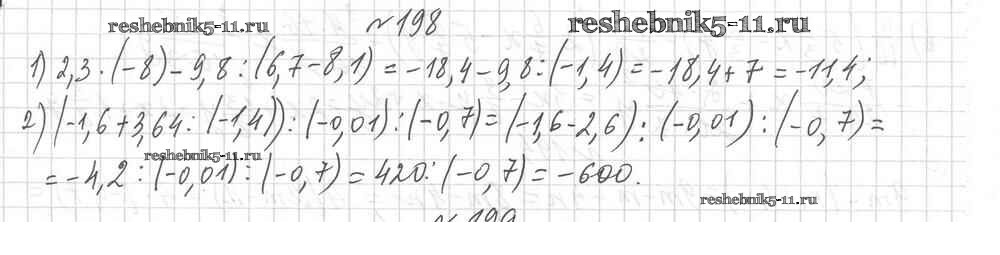 №198
reshebnik5-11.ru reshebnik5-11.ru
1) 2,3 · (-8) - 9,8 : (6,7 - 8,1) = -18,4 - 9,8 : (-1,4) = -18,4 + 7 = -11,4;
2) (-1,6 + 3,64 : (-1,4)) : (-0,01) : (-0,7) = (-1,6 - 2,6) : (-0,01) : (-0,7) =
reshebnik5-11.ru
= -4,2 : (-0,01) : (-0,7) = 420 : (-0,7) = -600.
reshebnik5-11.ru
№199